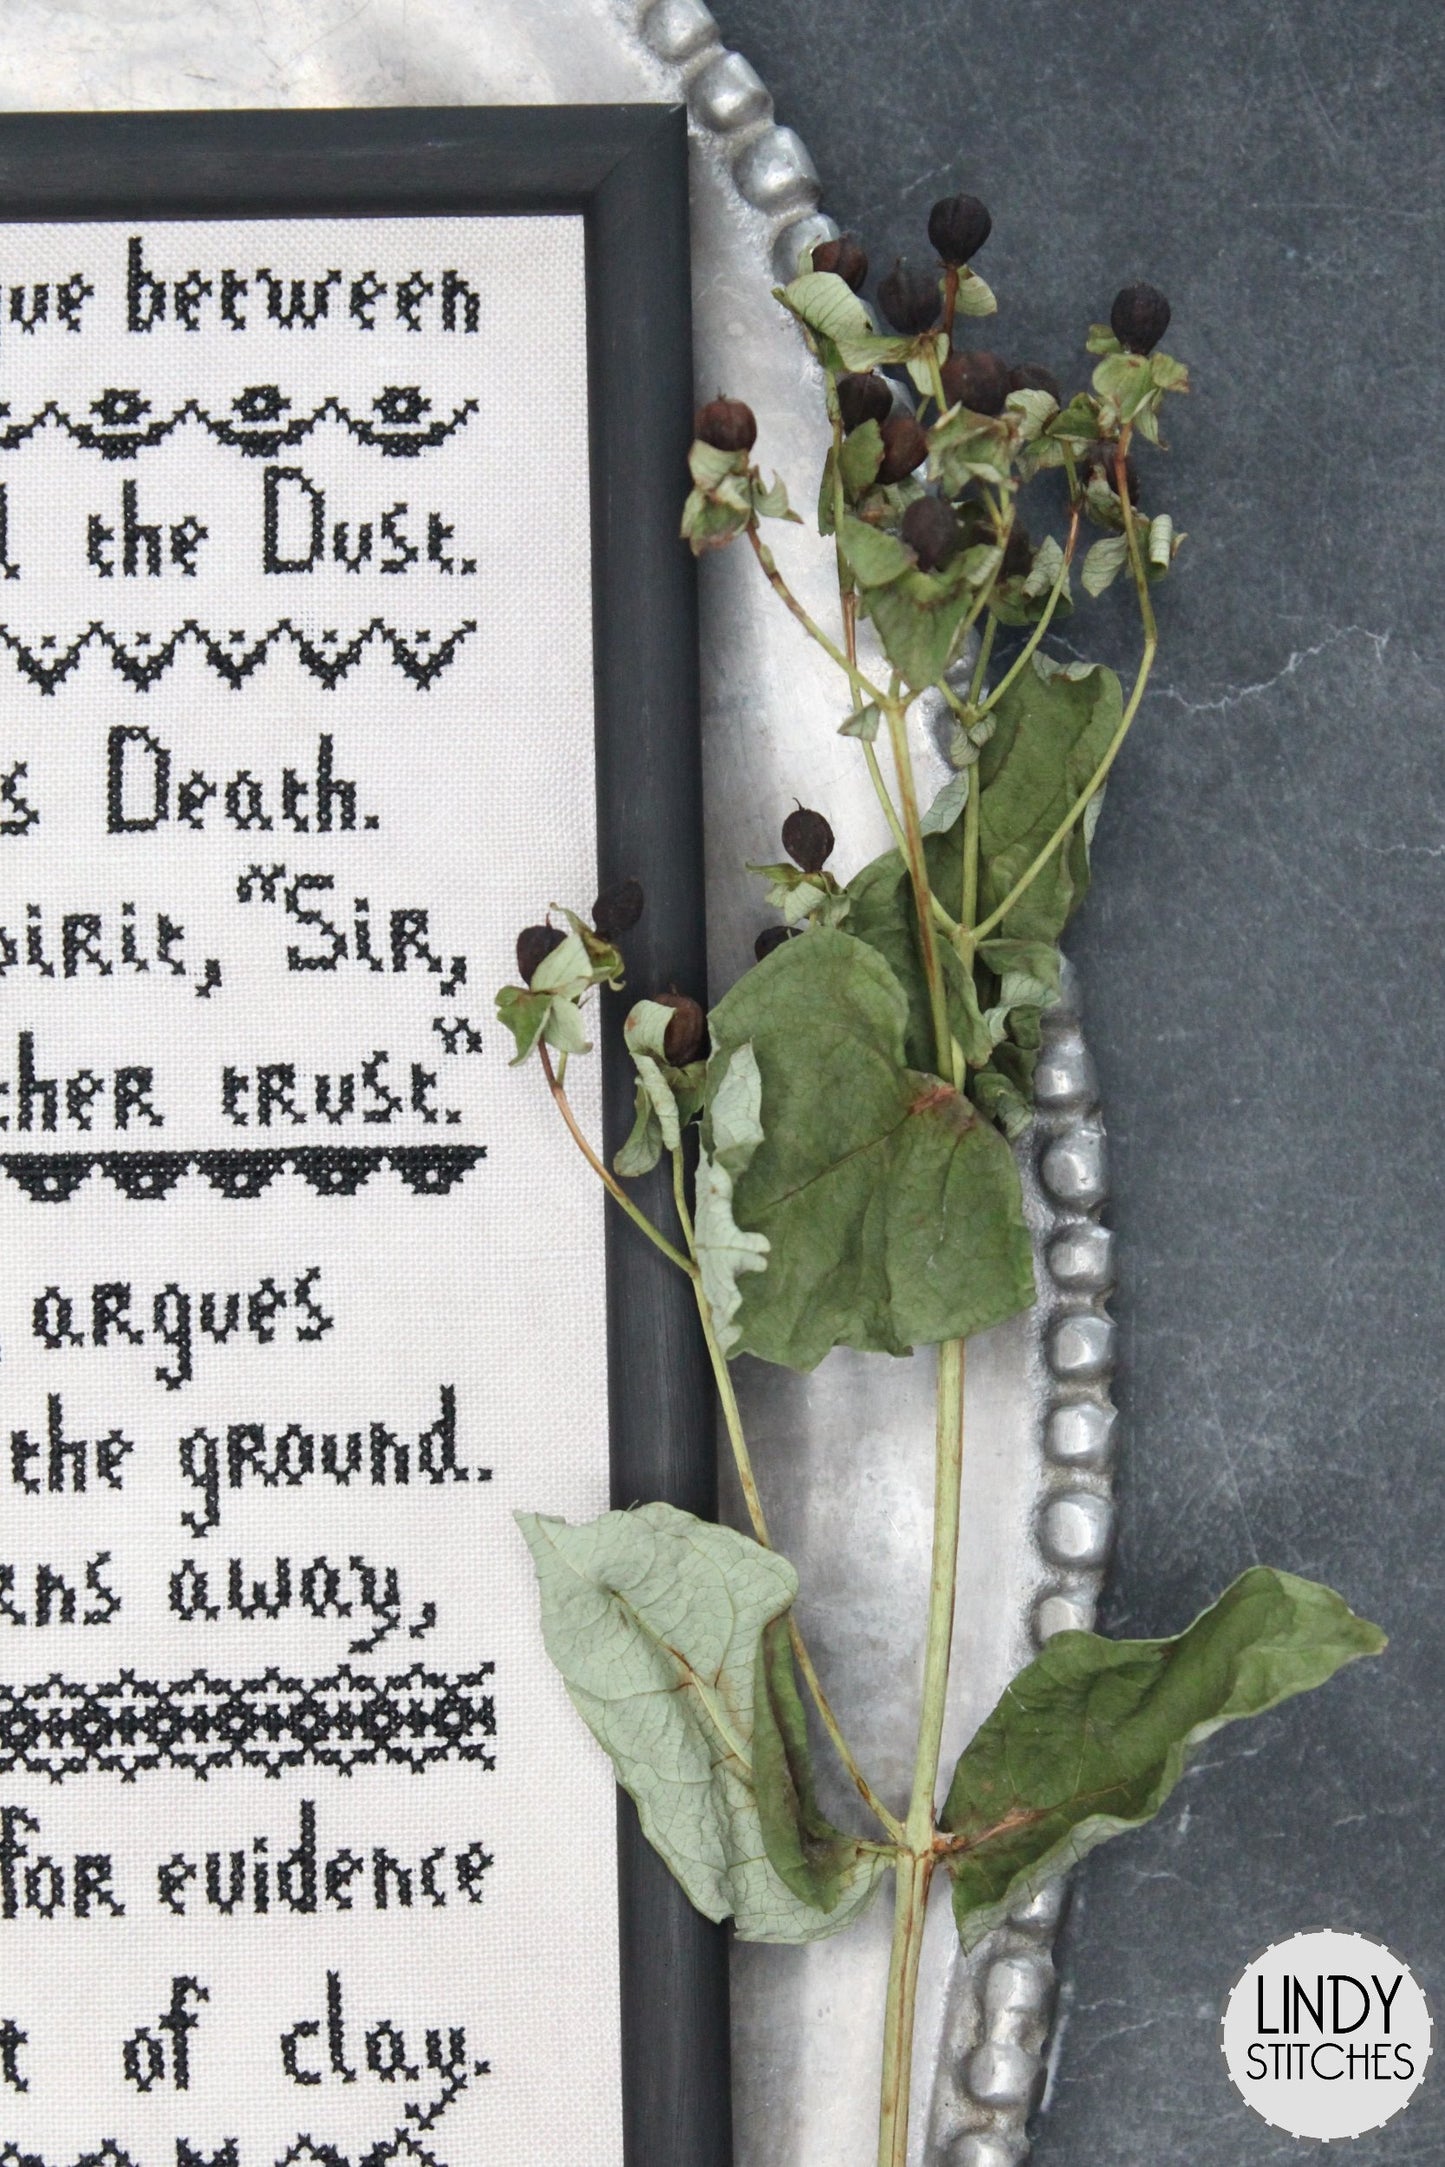 gue between
l the Dust.
s Death.
pirit, "Sir,
ther trust."
argues
the ground.
rns away,
for evidence
t of clay.
LINDY
STITCHES